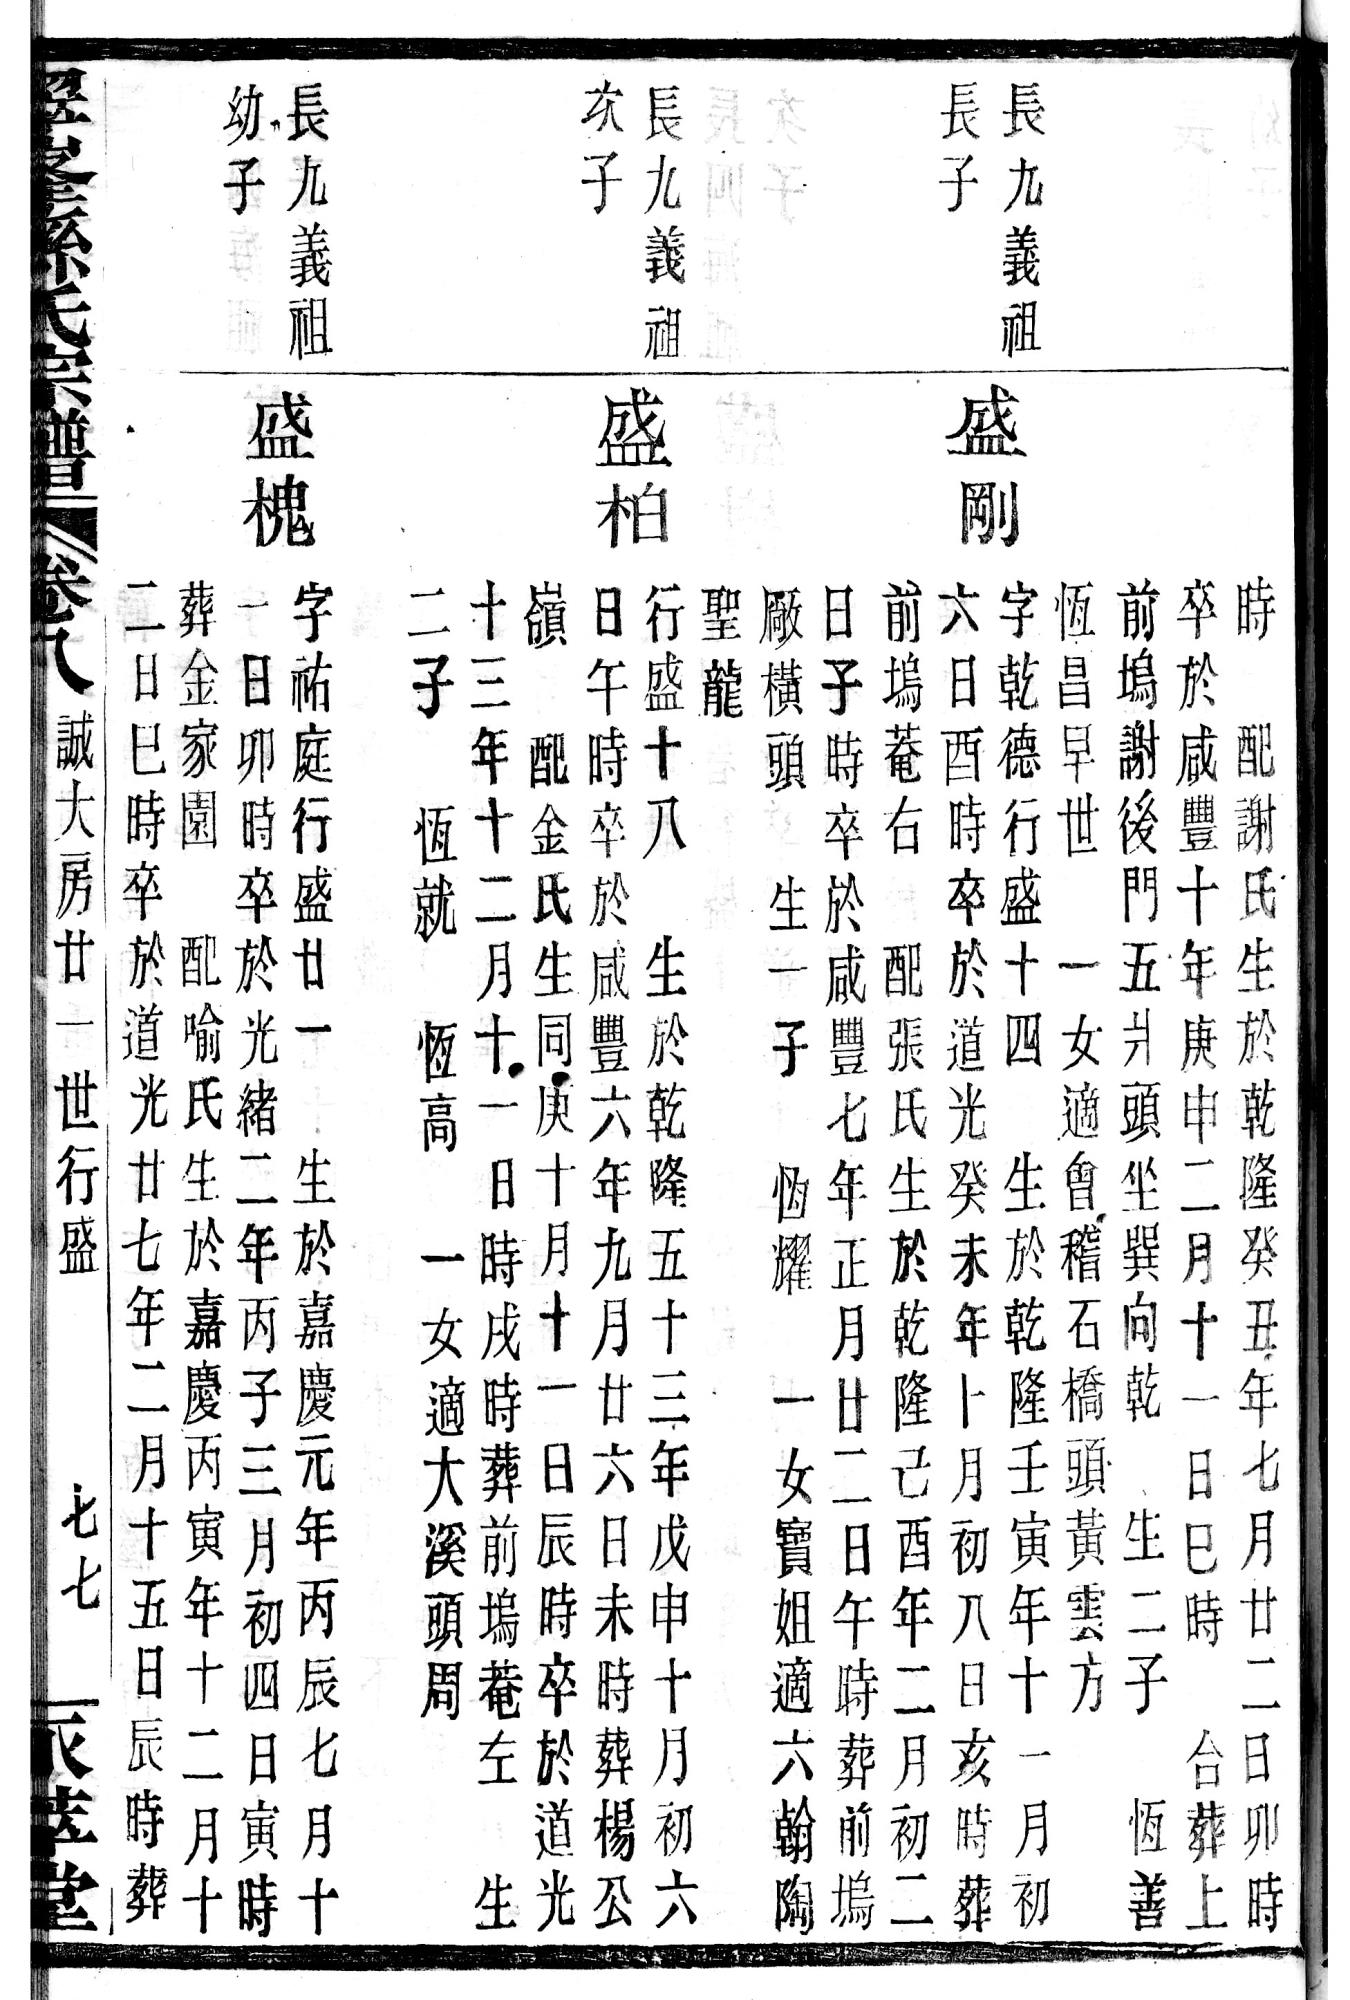 時　配謝氏生於乾隆癸丑年七月廿二日卯時
卒於咸豐十年庚申二月十一日巳時　台葬上
前塢謝後門五爿頭坐巽向乾　生二子　恆善
恆昌早世　一女適會稽石橋頭黃雲方
長九義祖
長子
盛剛
字乾德行盛十四　生於乾隆壬寅年十一月初
六日酉時卒於道光癸未年十月初八日亥時葬
前塢菴右　配張氏生於乾隆己酉年二月初二
日子時卒於咸豐七年正月廿二日午時葬前塢
厰橫頭　生一子　恆耀　一女寶姐適六翰陶
聖龍
長九義祖
次子
盛柏
行盛十八　生於乾隆五十三年戊申十月初六
日午時卒於咸豐六年九月廿六日未時葬楊公
嶺　配金氏生同庚十月十一日辰時卒於道光
十三年十二月十一日時戌時葬前塢菴左　生
二子　恆就　恆高　一女適大溪頭周
長九義祖
幼子
盛槐
字祐庭行盛廿一　生於嘉慶元年丙辰七月十
一日卯時卒於光緒二年丙子三月初四日寅時
葬金家園　配喻氏生於嘉慶丙寅年十二月十
二日巳時卒於道光廿七年二月十五日辰時葬
孫氏宗譜　卷八　誠大房廿一世行盛　七七　萃堂